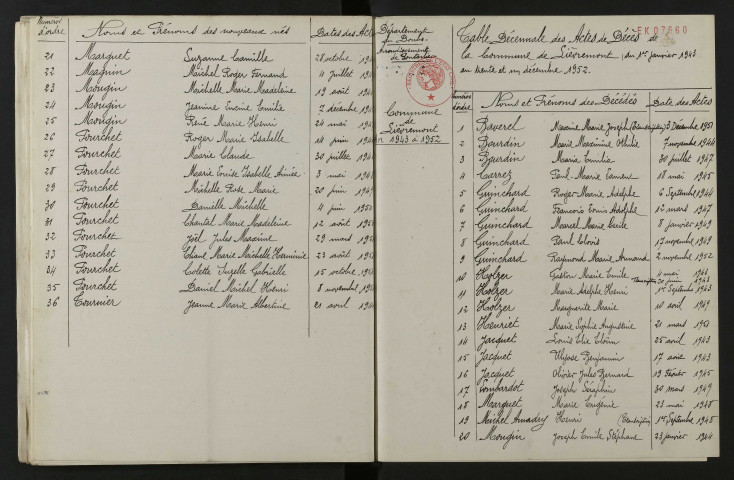 Numéros d'ordre Noms et Prénoms des nouveaux nés Dates des Act
21 Marguet Suzanne Camille 28 octobre
22 Magnin Michel Roger Fernand 4 juillet
23 Mougin Michelle Marie Madeleine 19 août
24 Mougin Jeanine Emilie 7 décembre
25 Mougin René Marie Henri 24 mai
26 Pourchet Roger Marie Isabelle 14 juin
27 Pourchet Marie Claude 30 juillet
28 Pourchet Marie Louise Isabelle Aimée 3 mai
29 Pourchet Michelle Rose Marie 20 juin
30 Pourchet Danielle Michelle 4 juin
31 Pourchet Chantal Marie Madeleine 12 août
32 Pourchet Joël Jules Maxime 29 mars
33 Pourchet Eliane Marie Michelle Herminie 23 août
34 Pourchet Colette Gabrielle 15 octobre
35 Pourchet Daniel Michel Henri 8 novembre
36 Tournier Jeanne Marie Albertine 21 avril
Département du Doubs
Arrondissement de Pontarlier
Commune
de
Lièvremont
1943 à 1952
EK07660
Table Décennale des Actes de Décès de
la Commune de Lièvremont, du 1er janvier 1943
au trente et un décembre 1952.
Numéros d'ordre Noms et Prénoms des Décédés Date des Actes
1 Baverel Maxime Marie Joseph (Transcription) 3 Décembre 1951
2 Bourdin Marie Maximine 7 novembre 1944
3 Bourdin Maria Emilia 30 juillet 1947
4 Carrez Paul Marie 18 mai 1945
5 Guinchard Roger Marie Adolphe 6 Septembre 1944
6 Guinchard François Louis Adolphe 12 mars 1947
7 Guinchard Marcel Marie 8 janvier 1949
8 Guinchard Paul Elovis 17 novembre 1949
9 Guinchard Raymond Marie Armand 2 novembre 1952
10 Holzer Gaston Marie Emile 4 mai
Transcription 30 juin 1943
11 Holzer Marie Adolphe Henri 1er Septembre 1943
12 Holzer Marguerite Marie 10 août 1949
13 Henriet Marie Sophie Augustine 21 mars 1951
14 Jacquet Louis Elie 25 avril 1943
15 Jacquet Ulysse Benjamin 17 août 1943
16 Jacquet Olivier Jules Bernard 19 Février 1945
17 Lombardot Joseph Séraphin 30 mars 1949
18 Marguet Marie Eugénie 23 mai 1948
19 Michel Amadry Henri (Transcription) 1er Septembre 1945
20 Mougin Joseph Emile Stéphane 23 janvier 1944